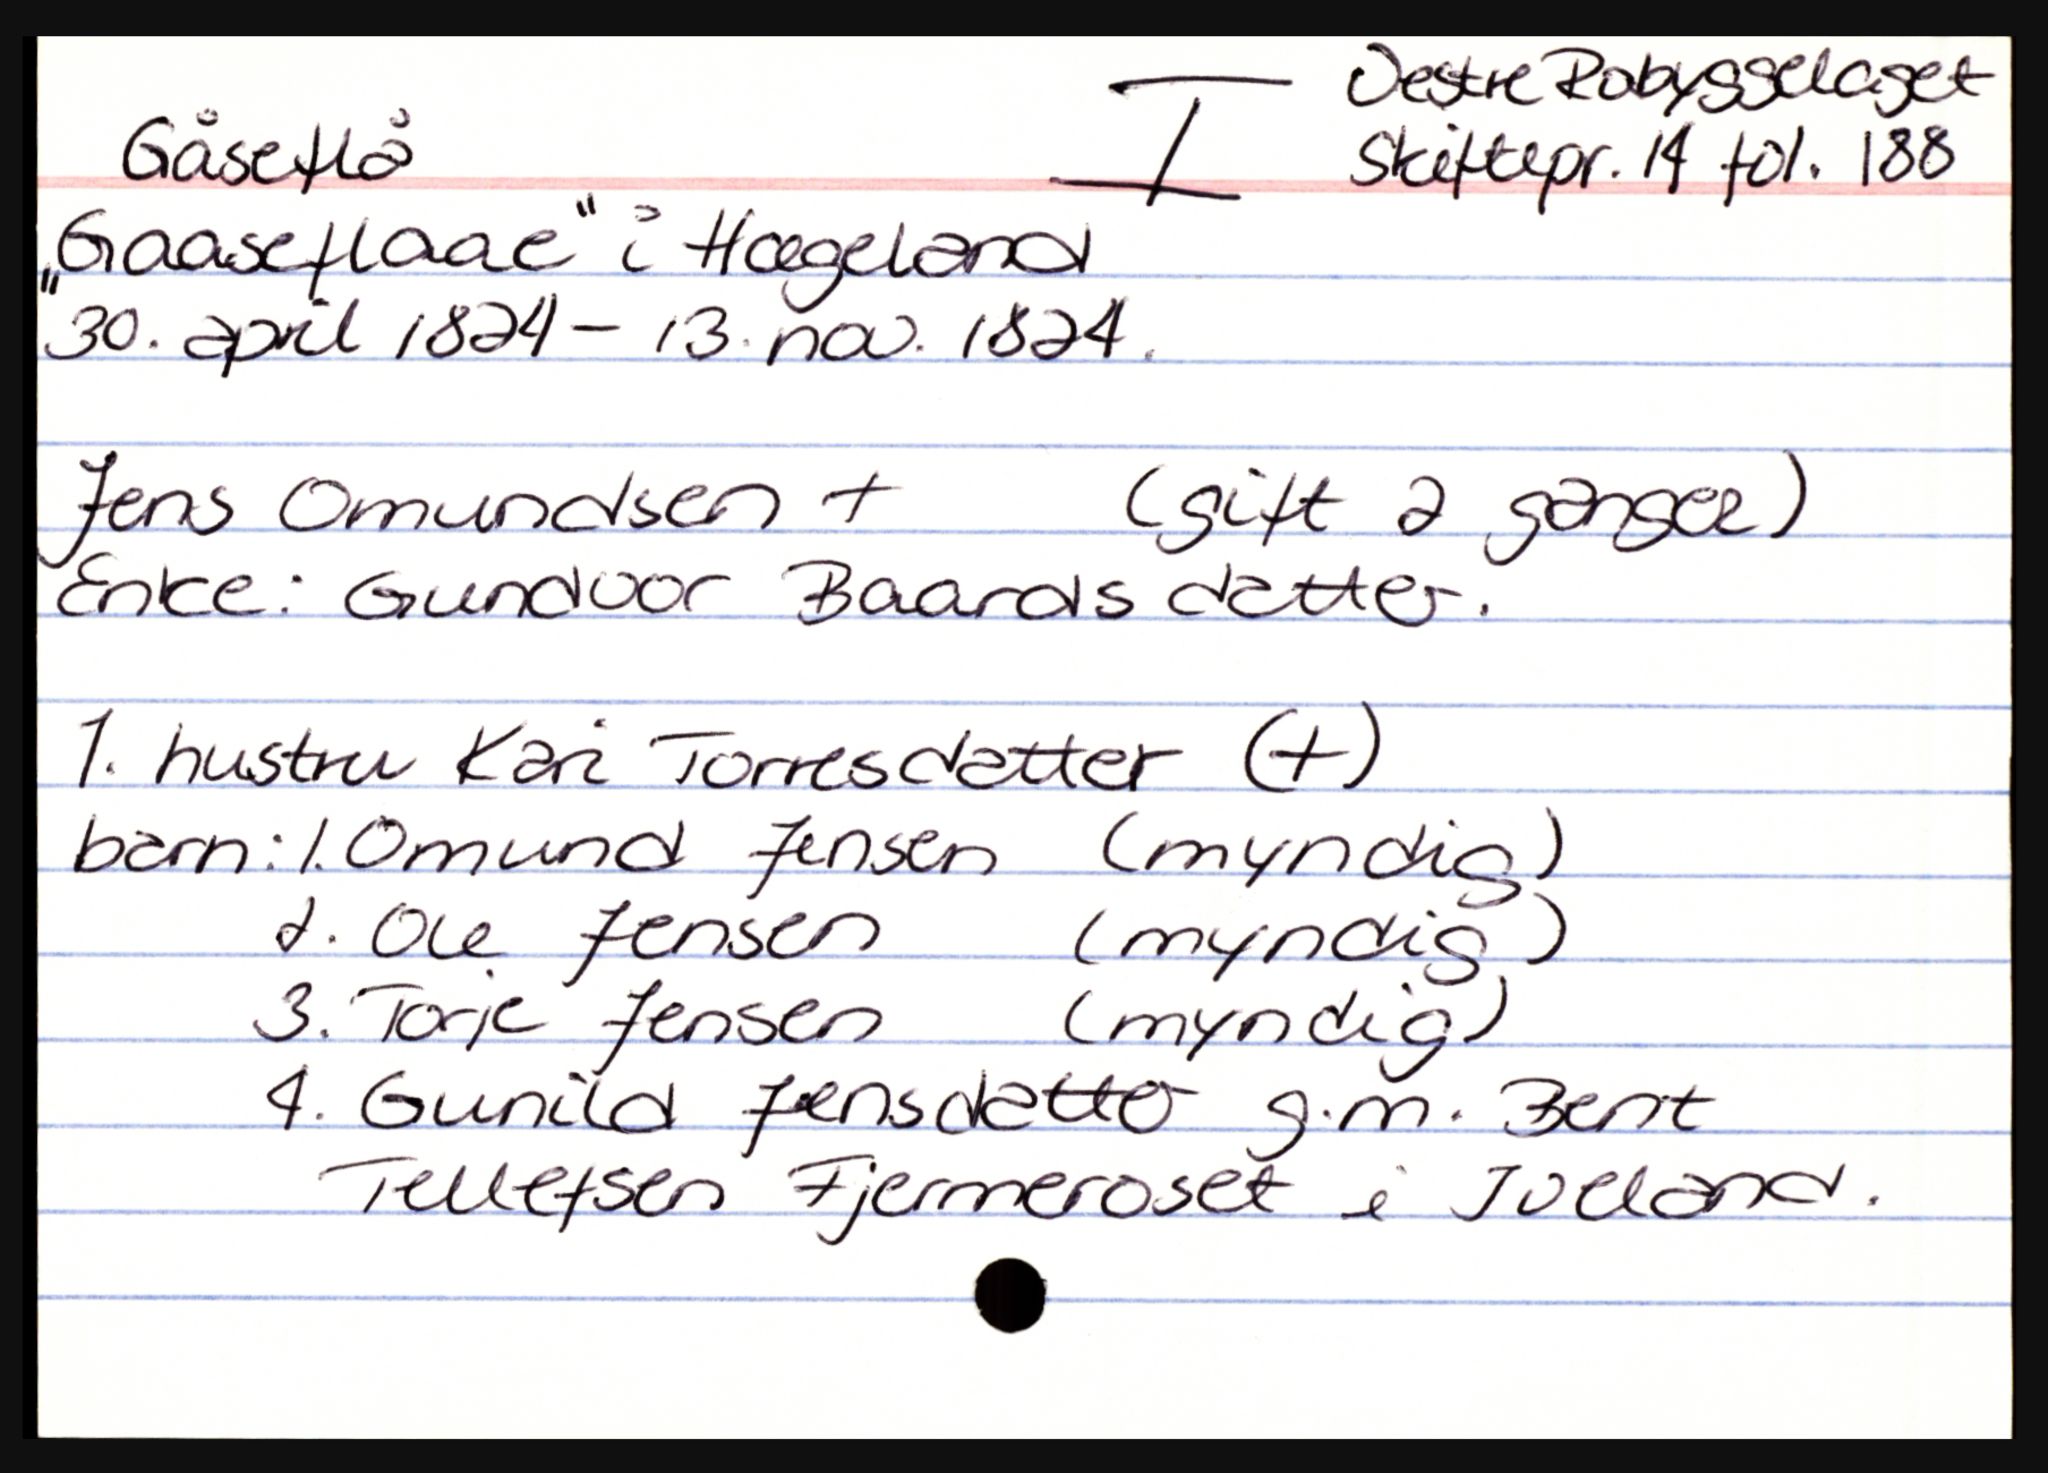 Vestre Robyggelaget
Gåseflå I Skiftepr. 14 fol. 188
„Gaaseflaae" i Hægeland
30. april 1824 – 13. nov. 1824.
Jens Omundsen + (gift 2 ganger)
Enke: Gunduor Baardsdatter.
1. hustru Kari Torresdatter (+)
barn: 1. Omund Jensen (myndig)
2. Ole Jensen (myndig)
3. Torje Jensen (myndig)
4. Gunild Jensdatter g.m. Bent
Tellefsen Fjermeroset i Iveland.